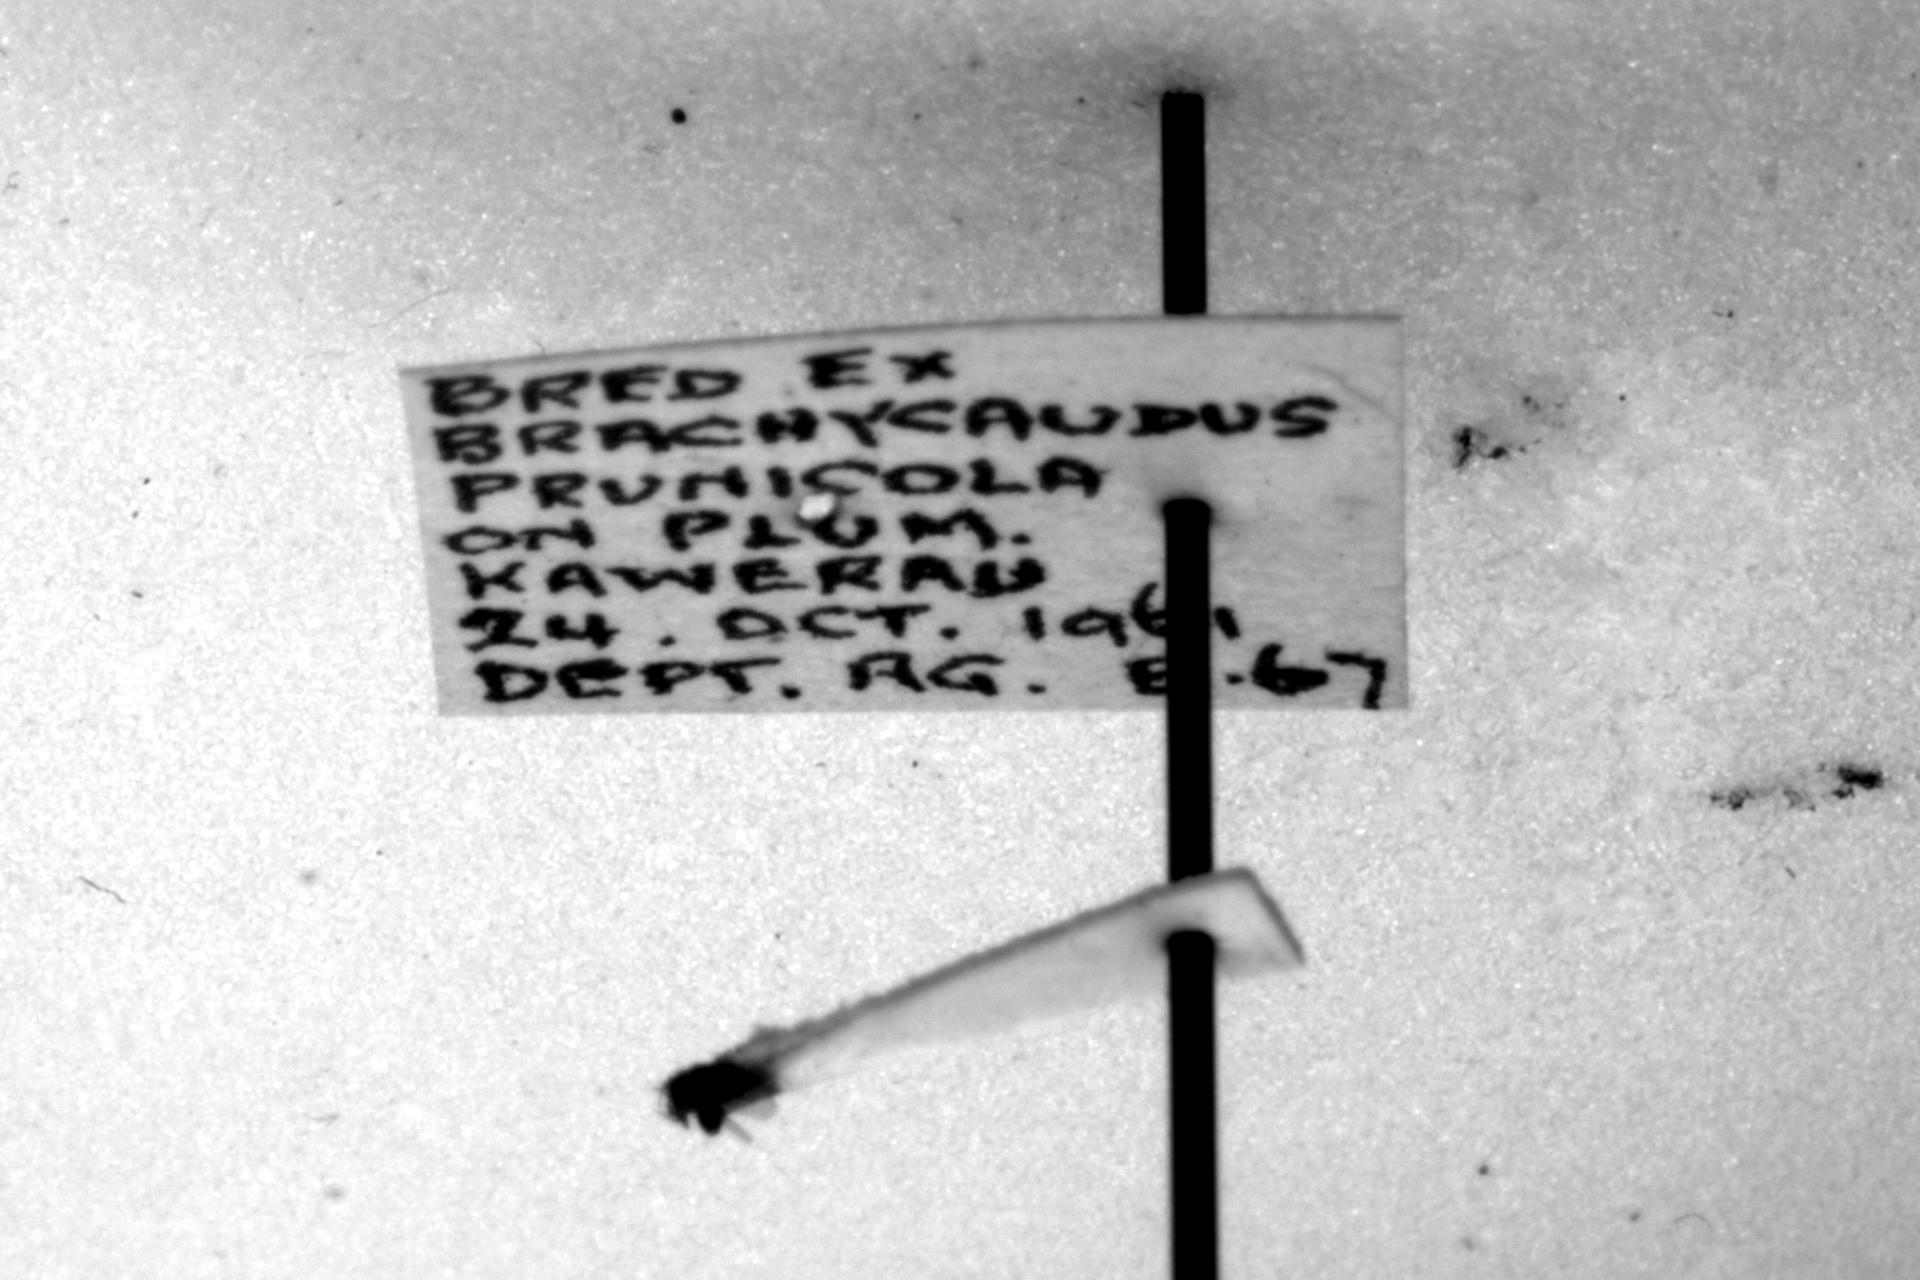 BRED EX
BRACHYCAUDUS
PRUNICOLA
ON PLUM.
KAWERAU
24. OCT. 1961
DEPT. AG. E.67